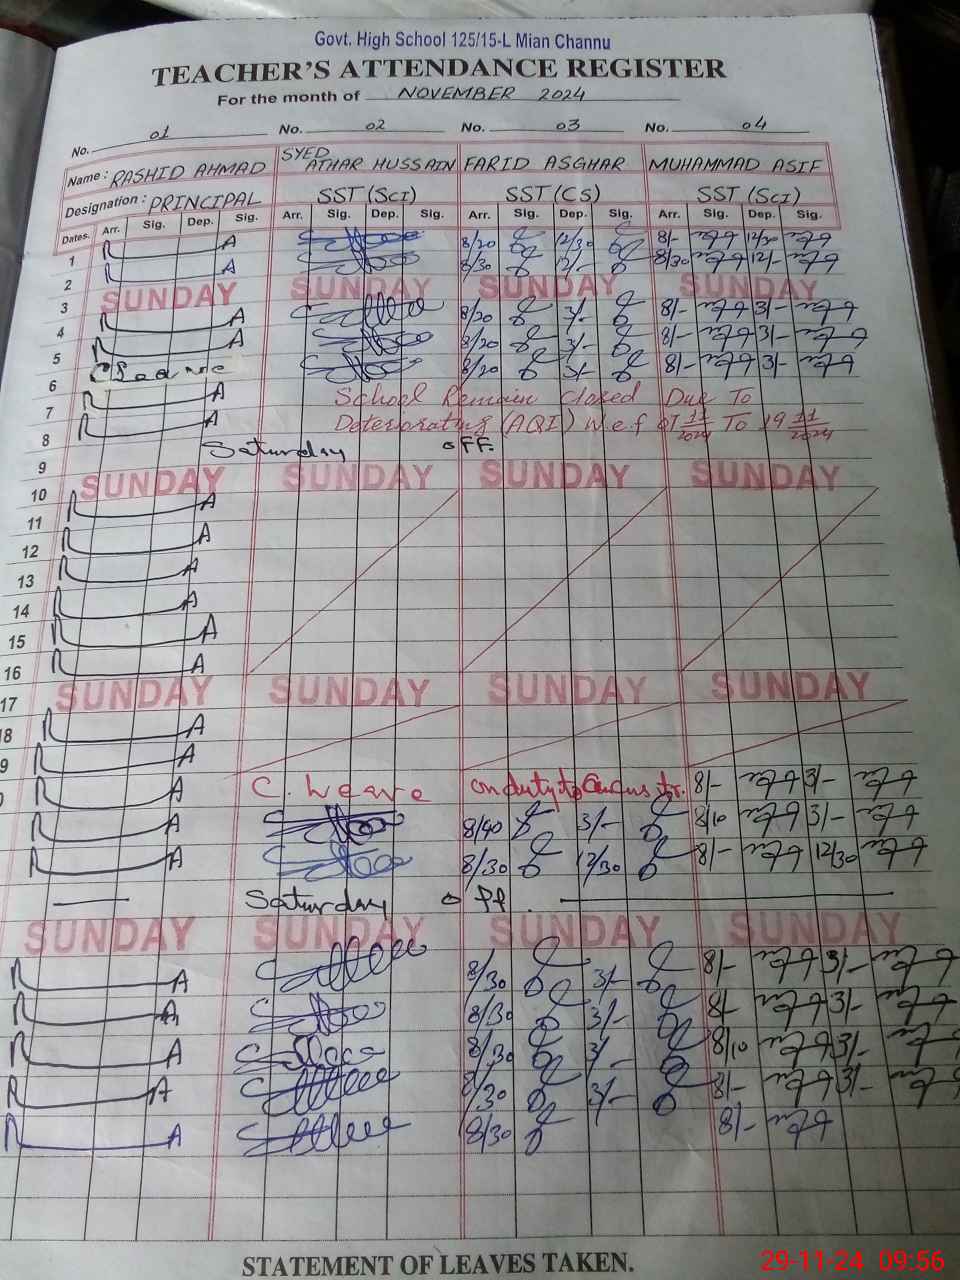 Govt. High School 125/15-L Mian Channu
TEACHER'S ATTENDANCE REGISTER
For the month of NOVEMBER 2024
No. 01 No. 02 No. 03 No. 04
Name : RASHID AHMAD SYED ATHAR HUSSAIN FARID ASGHAR MUHAMMAD ASIF
Designation : PRINCIPAL SST (SCI) SST (CS) SST (SCI)
Dates. Arr. Sig. Dep. Sig. Arr. Sig. Dep. Sig. Arr. Sig. Dep. Sig. Arr. Sig. Dep. Sig.
1 8/20 12/30 8/- 12/30
2 8/30 12/- 8/30 12/-
3 SUNDAY SUNDAY SUNDAY SUNDAY
4 8/20 3/- 8/- 3/-
5 8/20 3/- 8/- 3/-
6 C Leave 8/20 3/- 8/- 3/-
7 School Remain Closed Due To
8 Deteriorating (AQI) w.e.f 07 11/2024 To 19 11/2024
9 Saturday OFF.
10 SUNDAY SUNDAY SUNDAY SUNDAY
11
12
13
14
15
16
17 SUNDAY SUNDAY SUNDAY SUNDAY
8
9
C. Leave on duty to 8/- 3/-
8/40 3/- 8/10 3/-
8/30 12/30 8/- 12/30
Saturday off.
SUNDAY SUNDAY SUNDAY SUNDAY
8/30 3/- 8/- 3/-
8/30 3/- 8/- 3/-
8/30 3/- 8/10 3/-
8/30 3/- 8/- 3/-
8/30 8/-
STATEMENT OF LEAVES TAKEN.
29-11-24 09:56